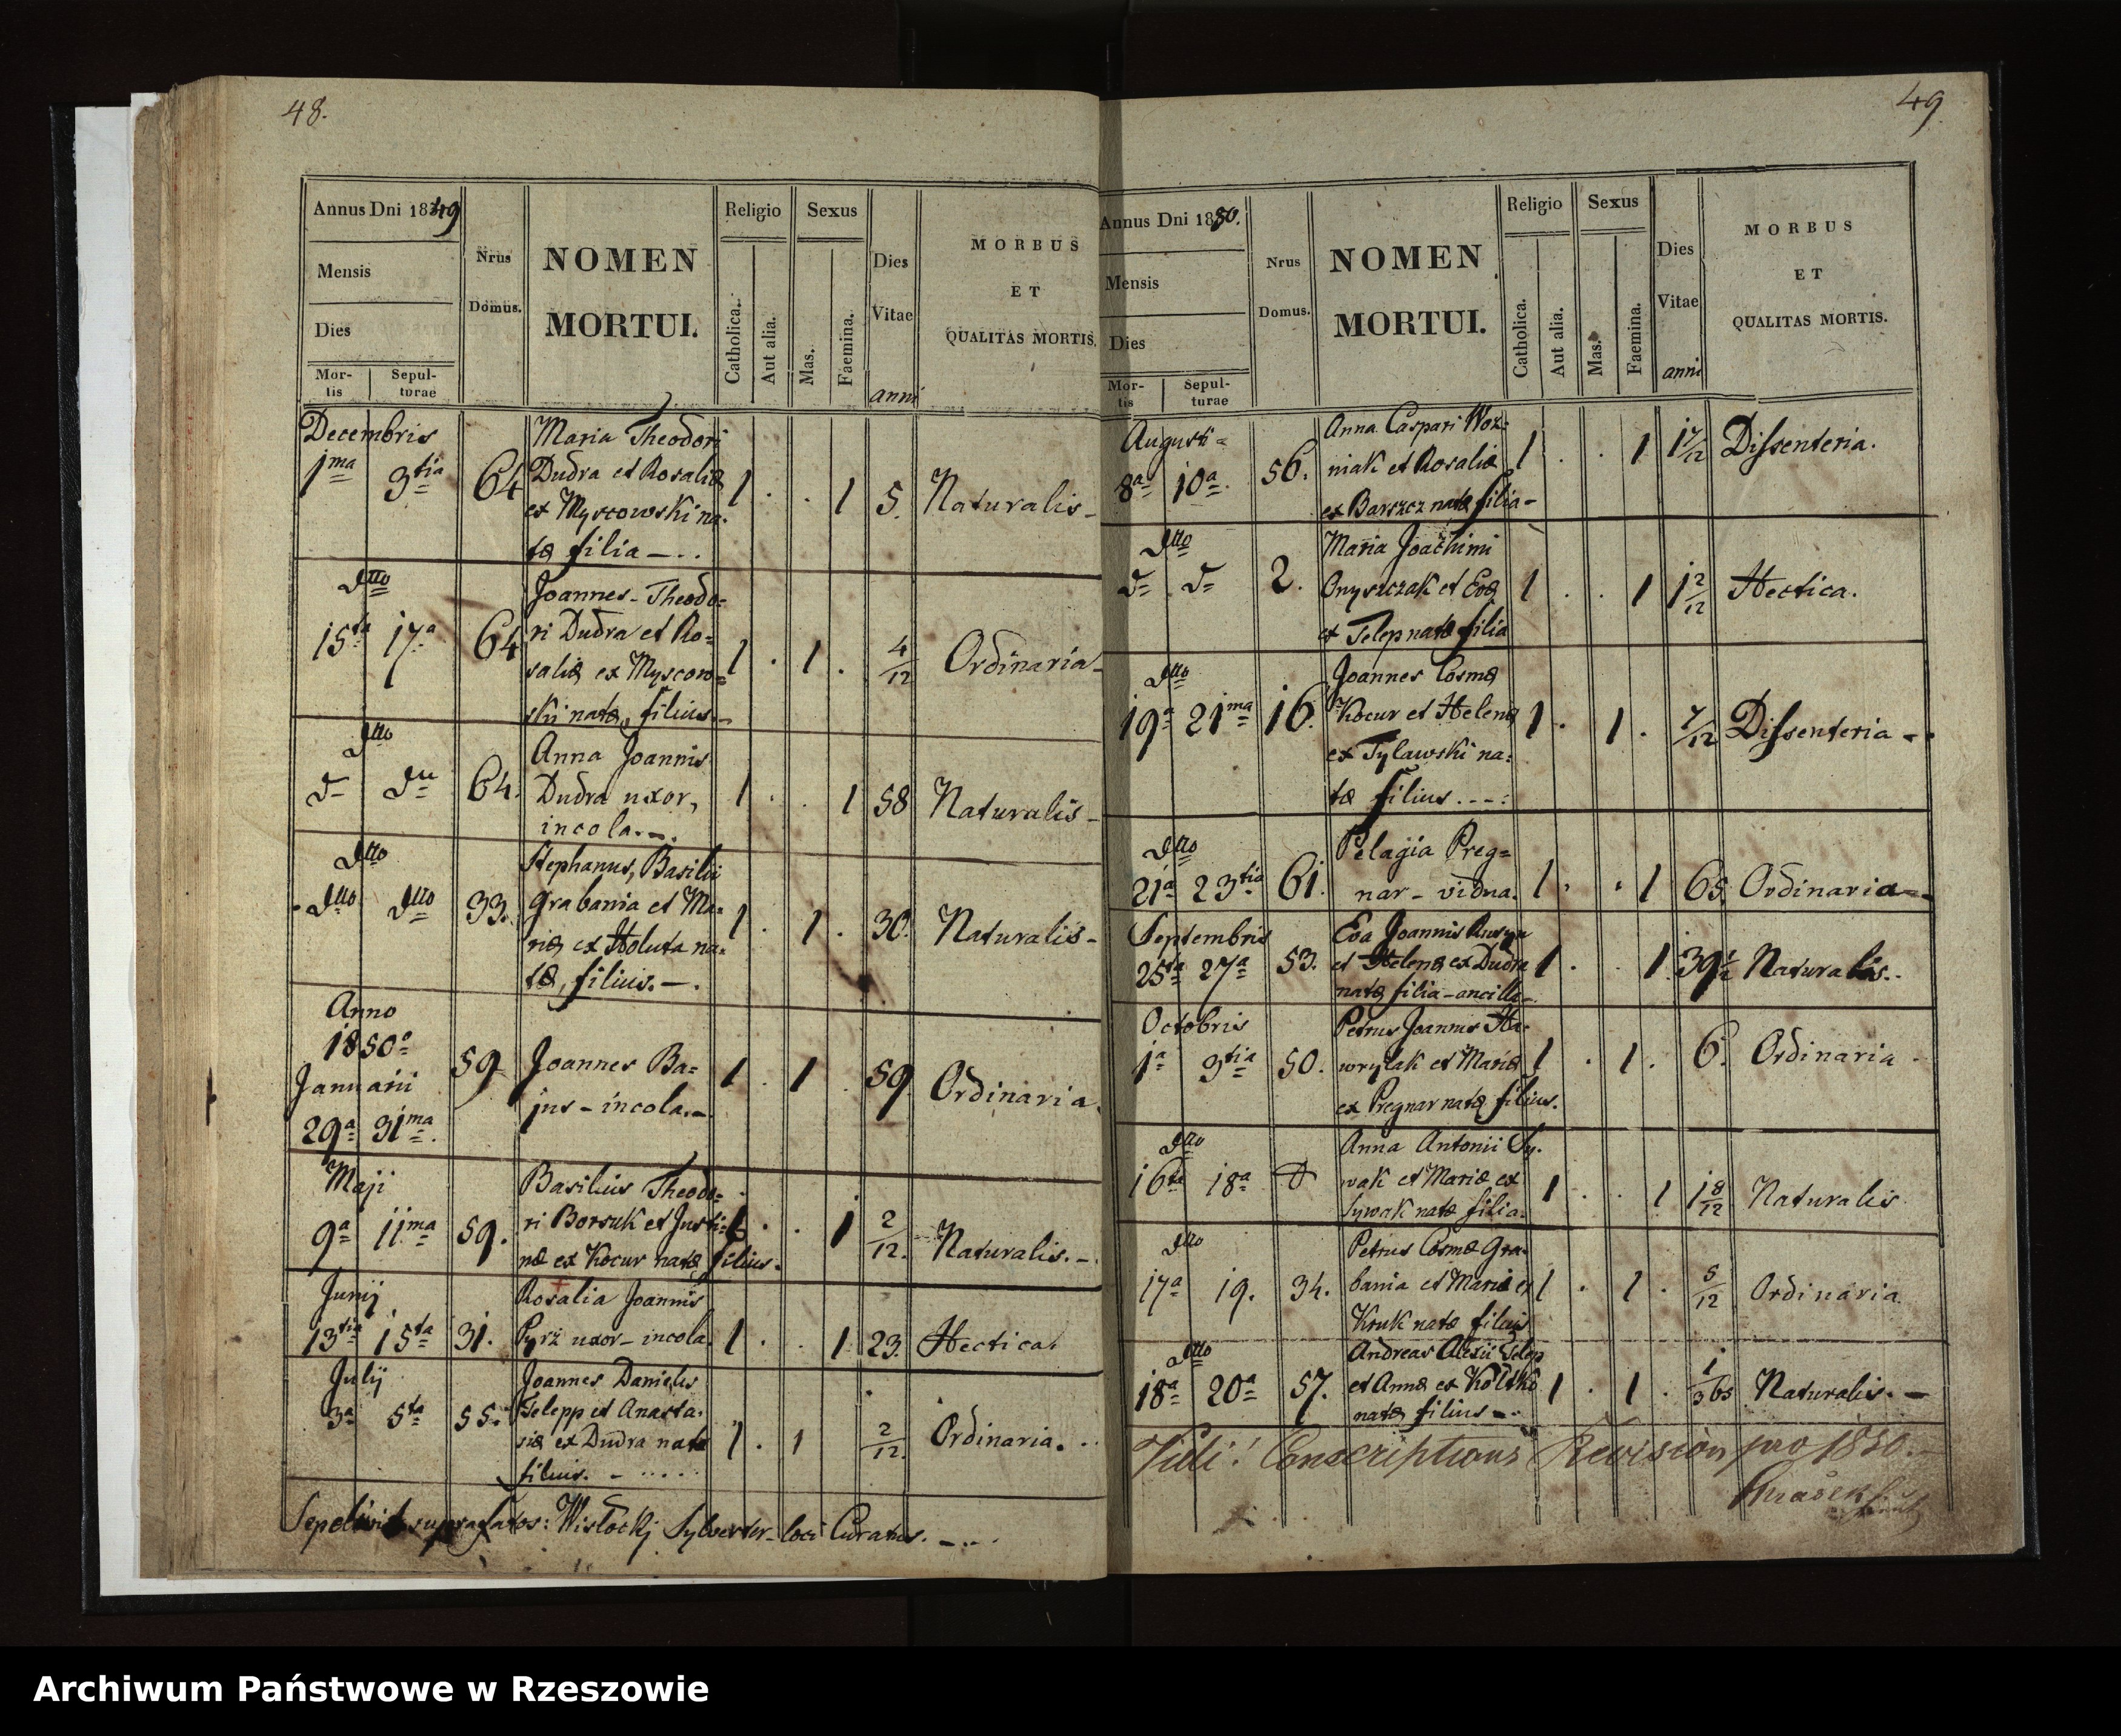 48.
Annus Dni 1849
Mensis
Dies
Mor-
tis
Sepul-
turae
Nrus
Domus.
NOMEN
MORTUI.
Religio
Catholica.
Aut alia.
Sexus
Mas.
Faemina.
Dies
Vitae
anni
MORBUS
ET
QUALITAS MORTIS.
Decembris
Maria Theodori
1ma 3tia 64 Dudra et Rosaliæ 1 . . 1 5. Naturalis -
ex Myscowski na-
tæ filia - . .
dtto
Joannes - Theodo=
15ta 17a 64 ri Dudra et Ro= 1 . 1 . 4/12 Ordinaria -
saliæ ex Myscow=
ski natæ, filius. -
dtto
Anna Joannis
64. Dudra uxor, 1 . . 1 58 Naturalis -
incola. - .
dtto
Stephanus, Basilii
dtto dtto 33. Grabania et Ma= 1 . 1 . 30. Naturalis -
riæ ex Holuta na=
tæ, filius. - .
Anno
1850o
Januarii
29a 31ma. 59 Joannes Ba= 1 . 1 . 59 Ordinaria.
jus - incola. -
Maji
Basilius Theodo=
9a 11ma 59. ri Borsuk et Justi= 1 . . 1 2/12. Naturalis. -
næ ex Kocur natæ filius.
Junij
Rosalia Joannis
13tia 15ta 31. Pyrż uxor - incola. 1 . . 1 23. Hectica.
Julij
Joannes Danielis
3a 5ta 55. Telepp et Anasta= 1 . 1 2/12. Ordinaria. . .
siæ ex Dudra natæ
filius. - . . . . .
Sepelivit suprafatos: Wisłockj Sylvester - loci Curatus. - . .
49
Annus Dni 1850.
Mensis
Dies
Mor-
tis
Sepul-
turae
Nrus
Domus.
NOMEN
MORTUI.
Religio
Catholica.
Aut alia.
Sexus
Mas.
Faemina.
Dies
Vitae
anni
MORBUS
ET
QUALITAS MORTIS.
Augusti
Anna Caspari Woz=
8a 10a. 56. niak et Rosaliæ 1 . . 1 1 7/12 Dissenteria.
ex Barszcz natæ filia -
dtto
Maria Joachimi
2. Onyszczak et Evæ 1 . . 1 1 2/12 Hectica.
ex Telep natæ filia
dtto
Joannes Cosmæ
19a 21ma 16. Kocur et Helenæ 1 . 1 . 7/12 Dissenteria - .
ex Tylawski na=
tæ filius . - - :
dtto
Pelagia Preg=
21a 23tia 61. nar - vidua. 1 . . 1 65. Ordinaria -
Septembris
Eva Joannis Rusyn
25ta 27a 53. et Helenæ ex Dudra 1 . . 1 39 Naturalis.
natæ filia - ancilla -
Octobris
Petrus Joannis Ha=
1a 3tia 50. wrylak et Mariæ 1 . 1 . 6. Ordinaria .
ex Pregnar natæ filius.
dtto
Anna Antonii Sy=
16ta 18a wak et Mariæ ex 1 . . 1 1 8/12 Naturalis
Sywak natæ filia.
dtto
Petrus Cosmæ Gra=
17a 19. 34. bania et Mariæ ex 1 . 1 . 5/12 Ordinaria.
Kruk natæ filius
dtto
Andreas Alexii Telep
18a 20a 57. et Annæ ex 1 . 1 . 1/365 Naturalis. -
natæ filius - .
Vidi! Conscriptions Revision pro 1850. -
Archiwum Państwowe w Rzeszowie